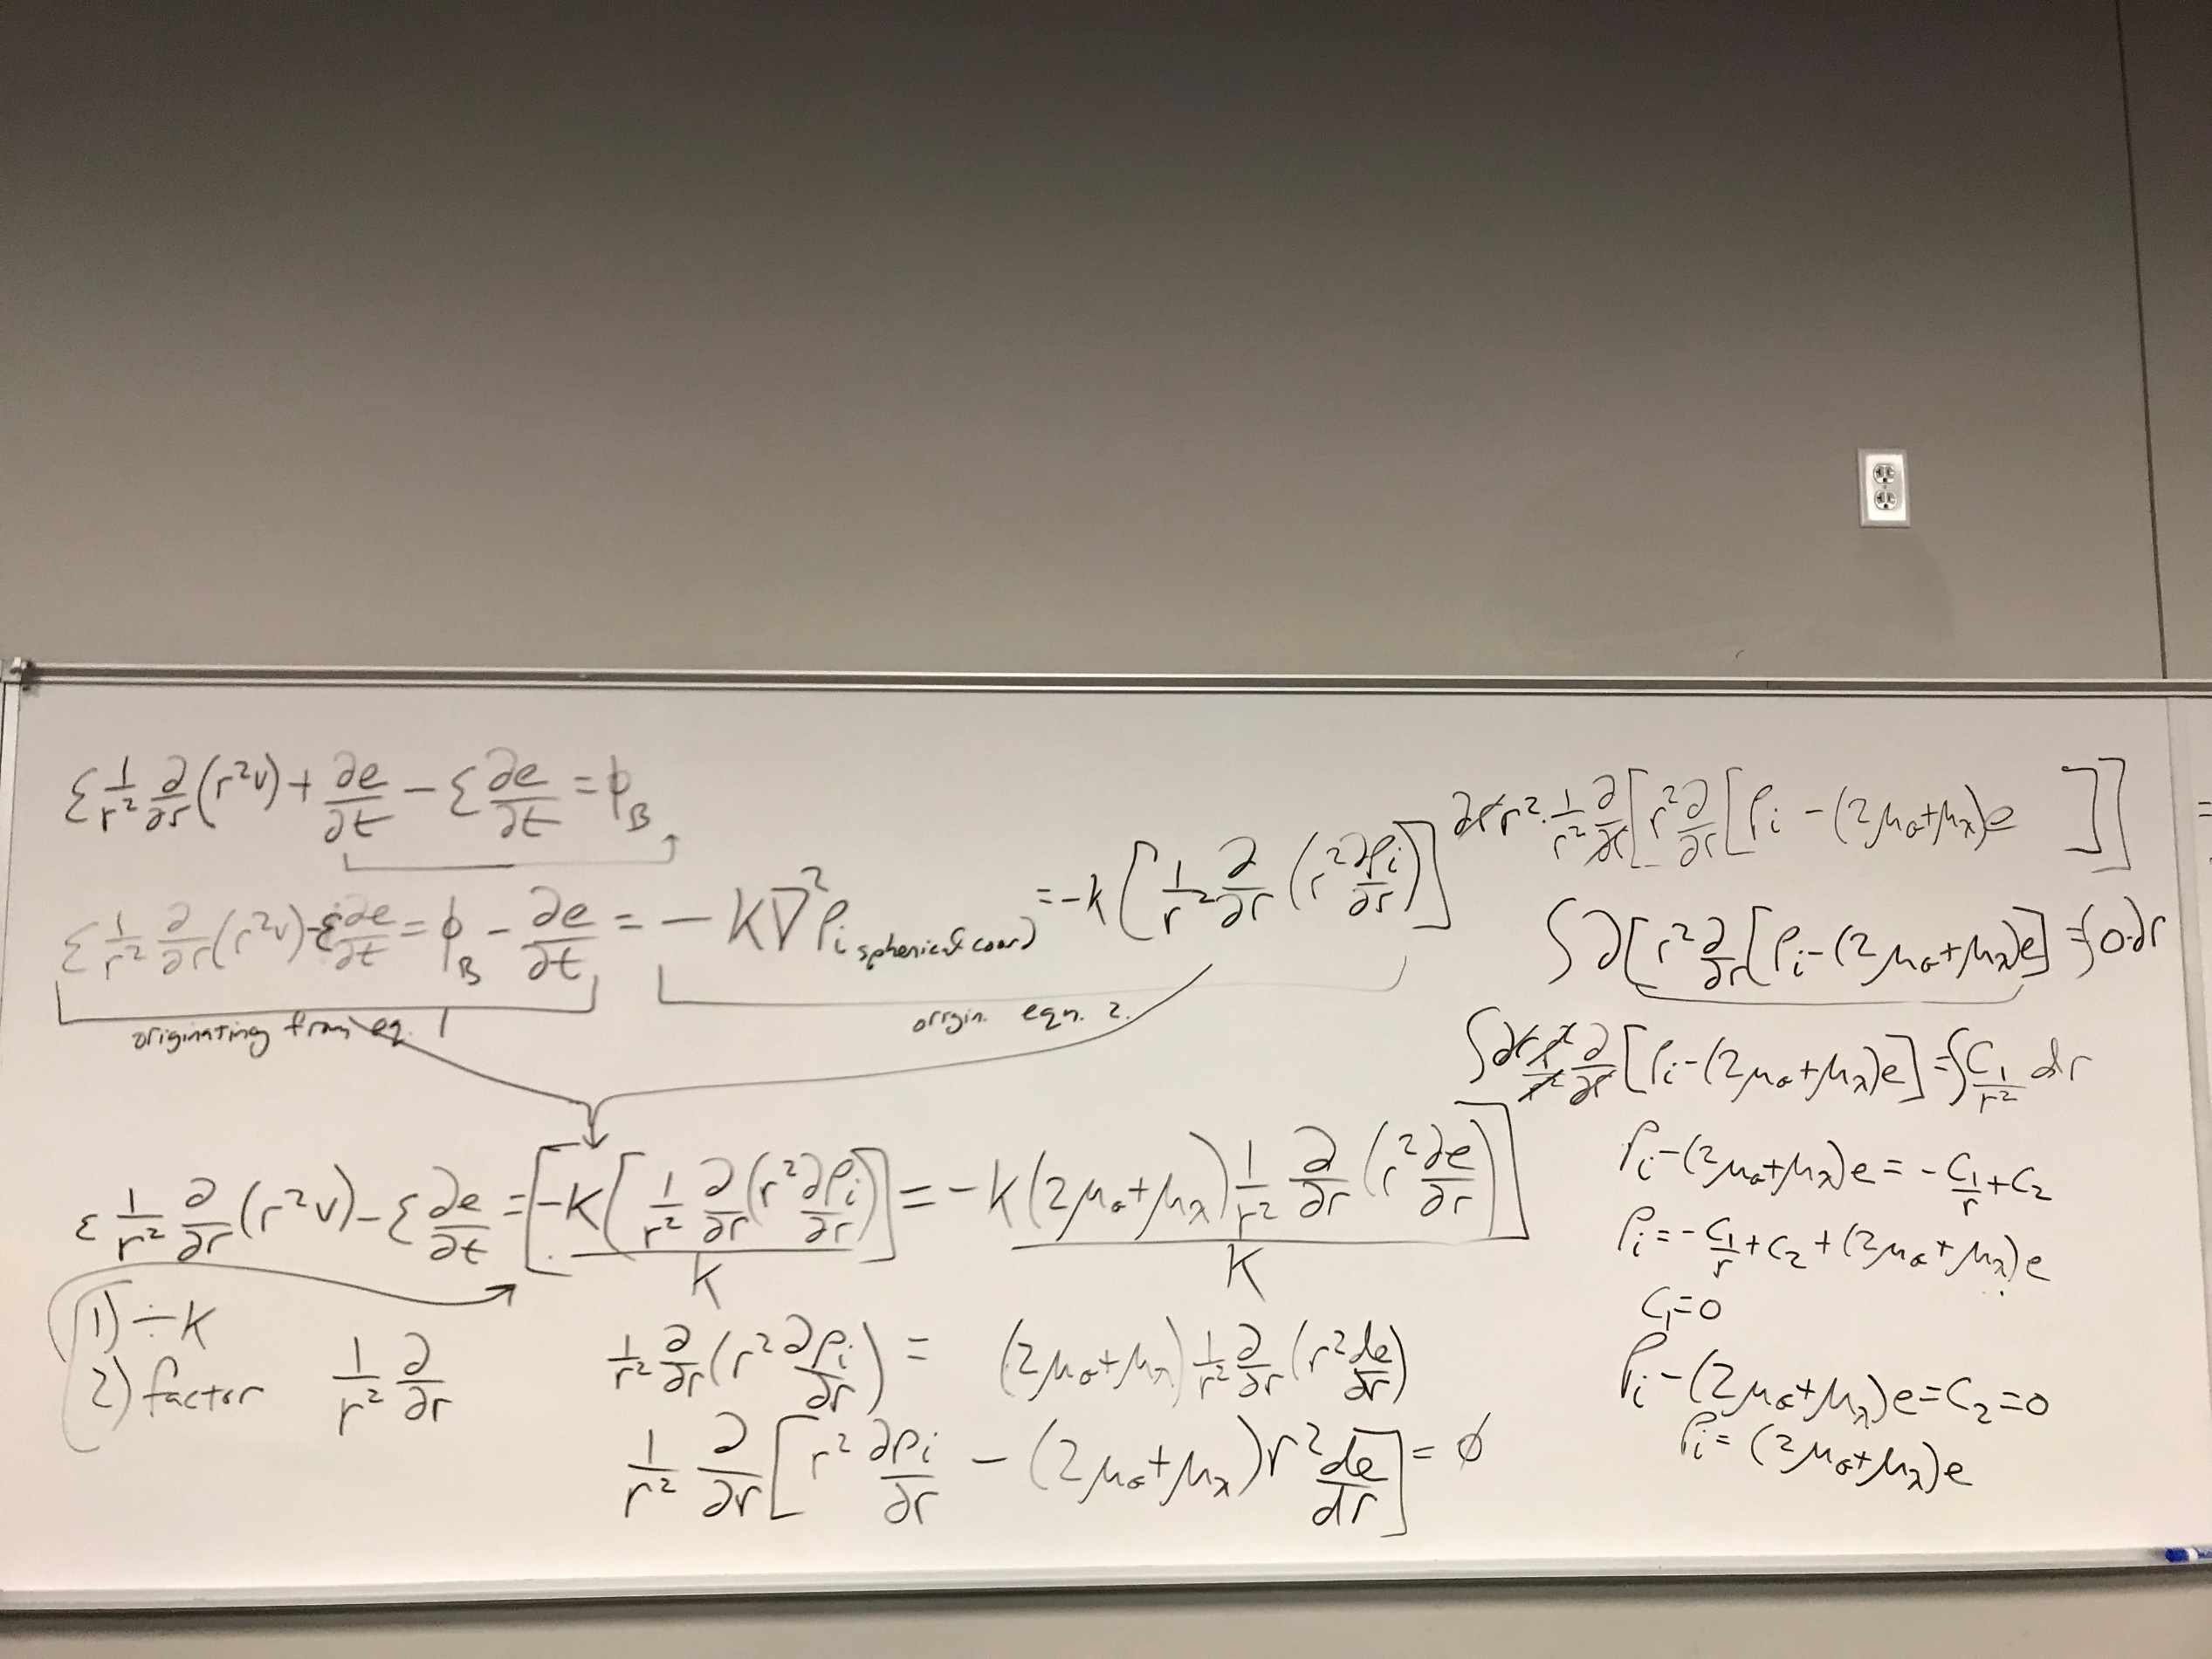 ε 1/r² ∂/∂r (r²v) + ∂e/∂t − ε ∂e/∂t = ϕ_B
ε 1/r² ∂/∂r (r²v) − ε ∂e/∂t = ϕ_B − ∂e/∂t = − K∇²P_i spherical coord = −K[1/r² ∂/∂r (r² ∂P_i/∂r)]
originating from eq. 1
origin. eqn. 2.
ε 1/r² ∂/∂r (r²v) − ε ∂e/∂t = [−K[1/r² ∂/∂r (r² ∂P_i/∂r)] = −K(2μ_σ+μ_λ) 1/r² ∂/∂r (r² ∂e/∂r)]
K K
1) ÷ K
2) factor 1/r² ∂/∂r
1/r² ∂/∂r (r² ∂P_i/∂r) = (2μ_σ+μ_λ) 1/r² ∂/∂r (r² de/dr)
1/r² ∂/∂r [r² ∂P_i/∂r − (2μ_σ+μ_λ) r² de/dr] = ∅
∂r r² · 1/r² ∂/∂r [r² ∂/∂r [P_i − (2μ_σ+μ_λ)e ]] =
∫∂[r² ∂/∂r [P_i − (2μ_σ+μ_λ)e] = ∫0·∂r
∫∂r r²/r² ∂/∂r [P_i − (2μ_σ+μ_λ)e] = ∫C₁/r² dr
P_i − (2μ_σ+μ_λ)e = −C₁/r + C₂
P_i = −C₁/r + C₂ + (2μ_σ+μ_λ)e
C₁=0
P_i − (2μ_σ+μ_λ)e = C₂ = 0
P_i = (2μ_σ+μ_λ)e